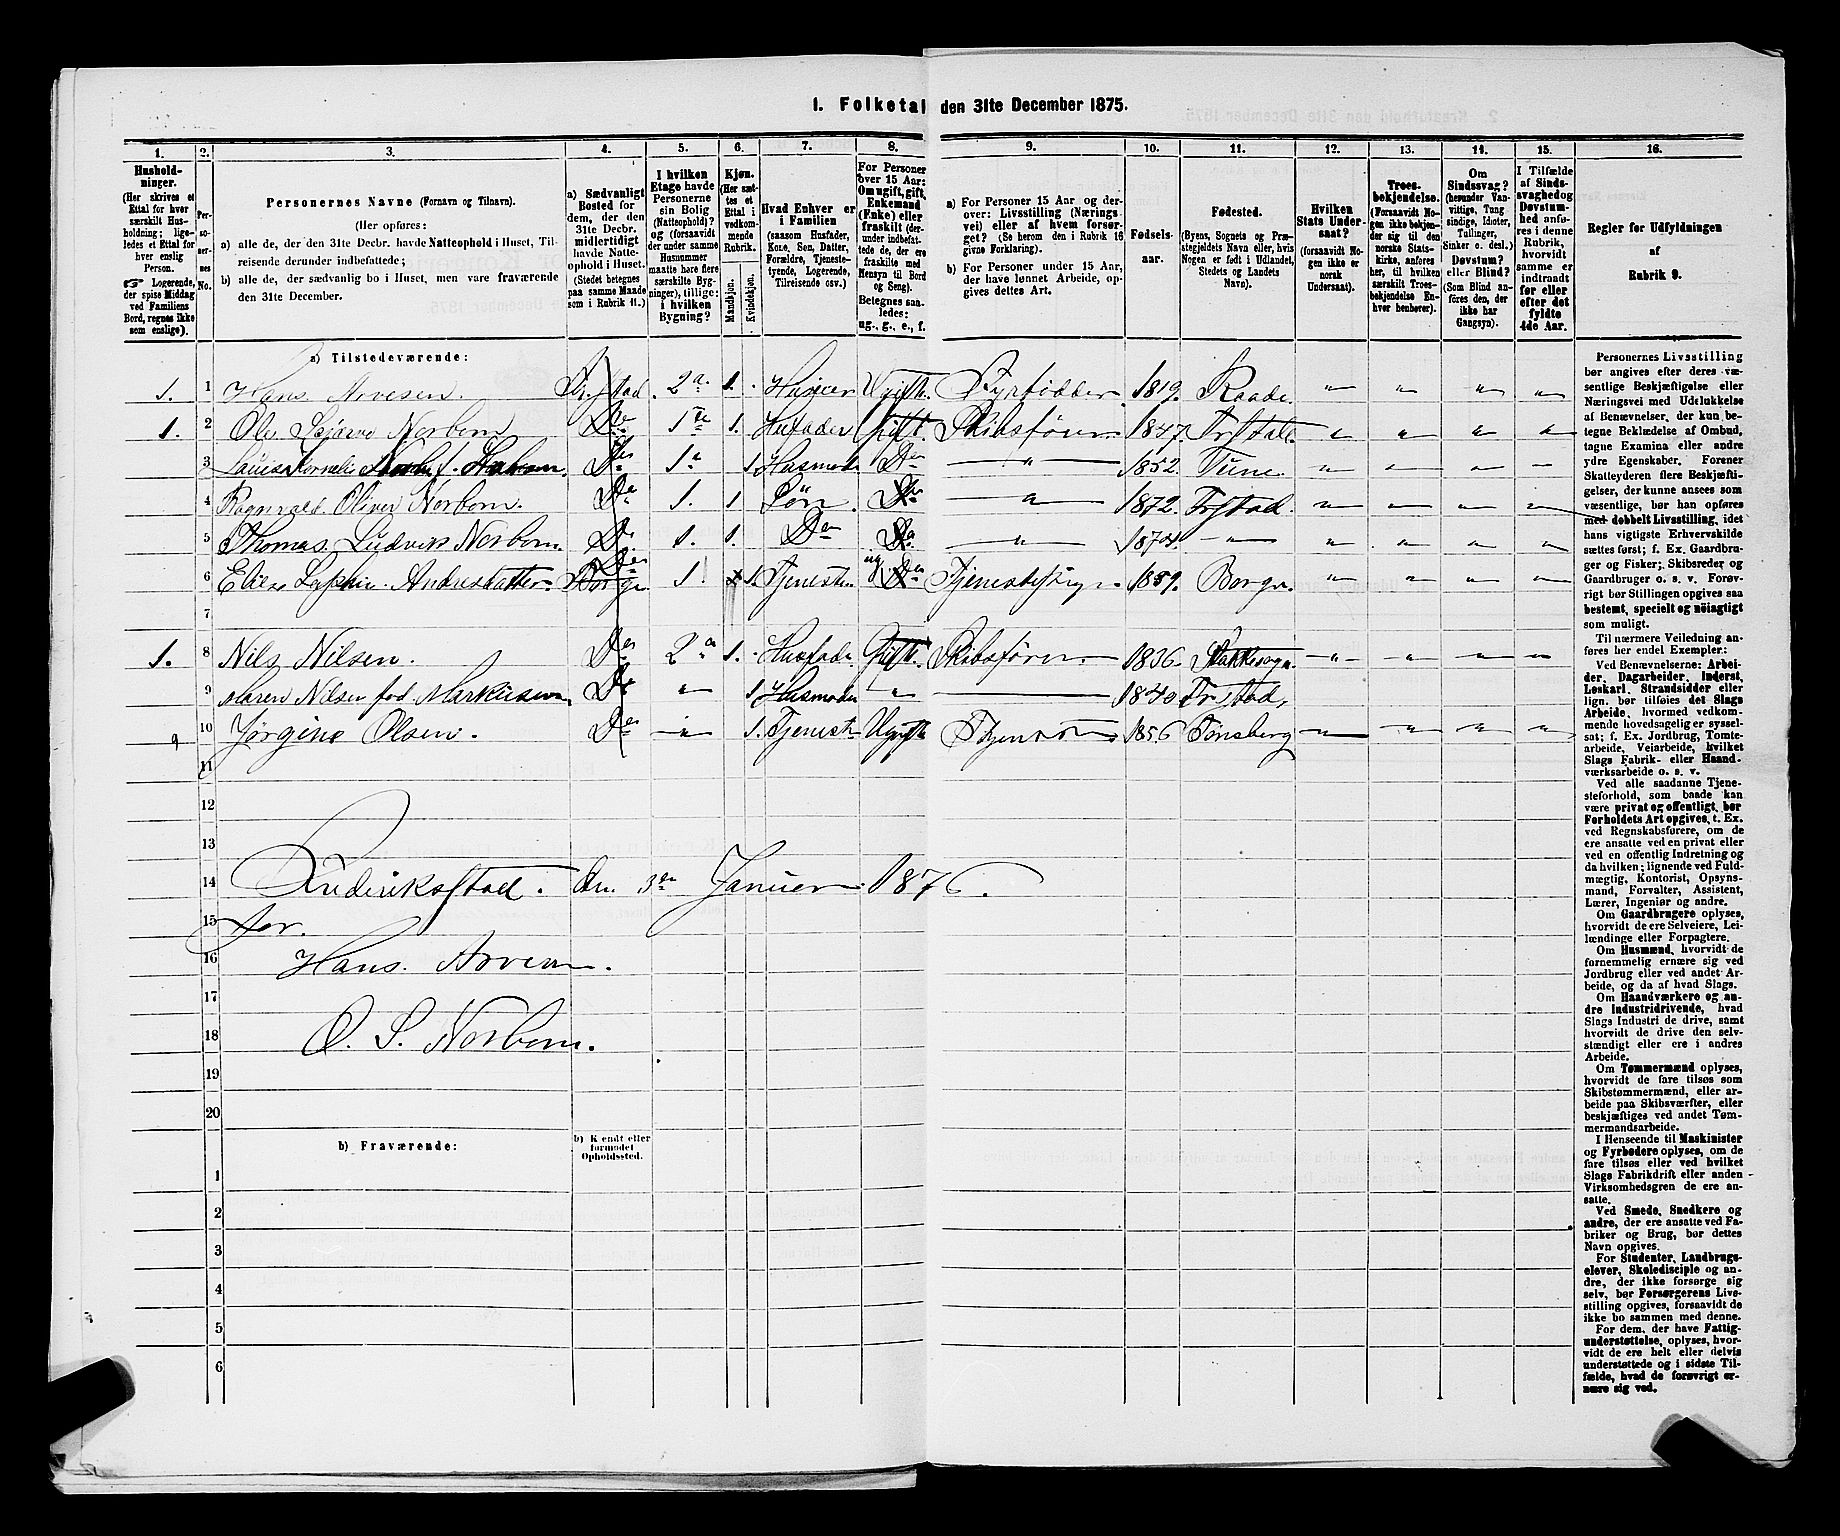 1. Folketal den 31te December 1875.
1. 2. 3. 4. 5. 6. 7. 8. 9. 10. 11. 12. 13. 14. 15. 16.
Hushold-
ninger.
(Her skrives et
Ettal for hver
særskilt Hus-
holdning; lige-
ledes et Ettal for
hver enslig
Person.
☞ Logerende,
der spise Middag
ved Familiens
Bord, regnes ikke
som enslige).
Per-
so-
ner-
nes
No.
Personernes Navne (Fornavn og Tilnavn).
(Her opføres:
a) alle de, der den 31te Decbr. havde Natteophold i Huset, Til-
reisende derunder indbefattede;
b) alle de, der sædvanlig bo i Huset, men vare fraværende
den 31te December.
a) Sædvanligt
Bosted for
dem, der den
31te Decbr.
midlertidigt
havde Natte-
ophold i Huset.
(Stedet betegnes
paa samme Maade
som i Rubrik 11.)
I hvilken
Etage havde
Personerne
sin Bolig
(Natteophold)?
og (forsaavidt
der under samme
Husnummer
maatte høre flere
særskilte Byg-
ninger), tillige:
i hvilken
Bygning?
Kjøn.
(Her sæt-
tes et
Ettal i
vedkom-
mende
Rubrik.
Mandkjøn.
Kvindekjøn.
Hvad Enhver er
i Familien
(saasom Husfader,
Kone, Søn, Datter,
Forældre, Tjeneste-
tyende, Logerende,
Tilreisende osv.)
For Personer
over 15 Aar:
Om ugift, gift,
Enkemand
(Enke) eller
fraskilt (der-
under indbefat-
tede de, der ere
fraskilte med
Hensyn til Bord
og Seng).
Betegnes saa-
ledes:
ug., g., e., f.
a) For Personer 15 Aar og der-
over: Livsstilling (Nærings-
vei) eller af hvem forsør-
get? (Se herom den i Rubrik 16
givne Forklaring).
b) For Personer under 15 Aar,
der have lønnet Arbeide, op-
gives dettes Art.
Fødsels-
aar.
Fødested.
(Byens, Sognets og Præ-
stegjeldets Navn eller, hvis
Nogen er født i Udlandet,
Stedets og Landets
Navn).
Hvilken
Stats Under-
saat?
(forsaavidt No-
gen ikke er
norsk
Undersaat).
Troes-
bekjendelse.
(Forsaavidt No-
gen ikke bekjen-
der sig til den
norske Stats-
kirke, anføres
her, til hvilken
særskilt Troes-
bekjendelse En-
hver henhører).
Om
Sindssvag?
(herunder Van-
vittige, Tung-
sindige, Idioter,
Tullinger,
Sinker o. desl.)
Døvstum?
eller Blind?
(Som Blind an-
føres den, der
ikke har
Gangsyn).
I Tilfælde
af Sinds-
svaghed og
Døvstum-
hed anfø-
res i denne
Rubrik,
hvorvidt
samme er
indtraadt
før eller
efter det
fyldte
4de Aar.
Regler for Udfyldningen
af
Rubrik 9.
a) Tilstedeværende:
1. 1 Hans Arvesen. Fr.stad. 2 a. 1. Ugift. 1819. Raade. " " " "
1. 2 Ole Norbom 1 te 1. Husfader Gift. Skibsfører 1847. Fr.stad. " " " "
3 1 a 1. Husmoder Do " 1852. Tune. " " " "
4 Ragnvald Oliver Norbom. Do 1. 1 Søn. Do " 1872. Fr.stad. " " " "
5 Thomas Ludvik Norbom. Do 1. 1. Do Do " 1874. " " " " "
6 Andersdatter Borge 1 1. Tjeneste ug Tjenestepige 1859. Borge. " " " "
7
1. 8 Nils Nilsen. Do 2 a 1. Husfader Gift. Skibsfører 1836. " " " "
9 Maren Nilsen fød Markusen Do " 1. Husmoder " 1840 Fr.stad,
10 Jørgine Olsen. Do " 1. Tjeneste Ugift 1856 Tønsberg " " " "
11
12
13
14 Frederiksstad. den 3de Januar 1876.
15 for
16 Hans Arvesen.
17
18 O. S. Norbom.
19
20
b) Fraværende:
b) Kendt eller
formodet
Opholdssted.
1
2
3
4
5
6
Personernes Livsstilling
bør angives efter deres væ-
sentlige Beskjæftigelse eller
Næringsvei med Udelukkelse
af Benævnelser, der kun be-
tegne Beklædelse af Ombud,
tagne Examina eller andre
ydre Egenskaber. Forener
Skatteyderen flere Beskjæfti-
gelser, der kunne ansees som
væsentlige, bør han opføres
med dobbelt Livsstilling, idet
hans vigtigste Erhvervskilde
sættes først; f. Ex. Gaardbru-
ger og Fisker; Skibsreder og
Gaardbruger o. s. v. Forøv-
rigt bør Stillingen opgives saa
bestemt, specielt og nøiagtigt
som muligt.
Til nærmere Veiledning an-
føres her endel Exempler:
Ved Benævnelserne: Arbei-
der, Dagarbeider, Inderst,
Løskarl, Strandsidder eller
lign. bør tilføies det Slags
Arbeide, hvormed vedkom-
mende hovedsagelig er syssel-
sat; f. Ex. Jordbrug, Tomte-
arbeide, Veiarbeide, hvilket
Slags Fabrik- eller Haand-
værksarbeide o. s. v.
Ved alle saadanne Tjene-
steforhold, som baade kan
være privat og offentligt, bør
Forholdets Art opgives, t. Ex.
ved Regnskabsførere, om de
ere ansatte ved en privat eller
ved en offentlig Indretning og
da hvilken; lignende ved Fuld-
mægtig, Kontorist, Opsyns-
mand, Forvalter, Assistent,
Lærer, Ingeniør og andre.
Om Gaardbrugere oplyses,
hvorvidt de ere Selveiere, Lei-
lændinge eller Forpagtere.
Om Husmænd, hvorvidt de
fornemmelig ernære sig ved
Jordbrug eller ved andet Ar-
beide, og da af hvad Slags.
Om Haandværkere og an-
dre Industridrivende, hvad
Slags Industri de drive, samt
hvorvidt de drive den selv-
stændigt eller ere i andres
Arbeide.
Om Tømmermænd oplyses,
hvorvidt de fare tilsøs som
Skibstømmermænd, eller ar-
beide paa Skibsværfter, eller
beskjæftiges ved andet Tøm-
mermandsarbeide.
I Henseende til Maskinister
og Fyrbødere oplyses, om de
fare tilsøs eller ved hvilket
Slags Fabrikdrift eller anden
Virksomhedsgren de ere an-
satte.
Ved Smede, Snedkere og
andre, der ere ansatte ved Fa-
briker og Brug, bør dettes
Navn opgives.
For Studenter, Landbrugs-
elever, Skoledisciple og an-
dre, der ikke forsørge sig
selv, bør Forsørgerens Livs-
stilling opgives, forsaavidt de
ikke bo sammen med denne.
For dem, der have Fattig-
understøttelse, oplyses, hvor-
vidt de ere helt eller delvis
understøttede og i sidste Til-
fælde, hvad de forøvrigt er-
nære sig ved.